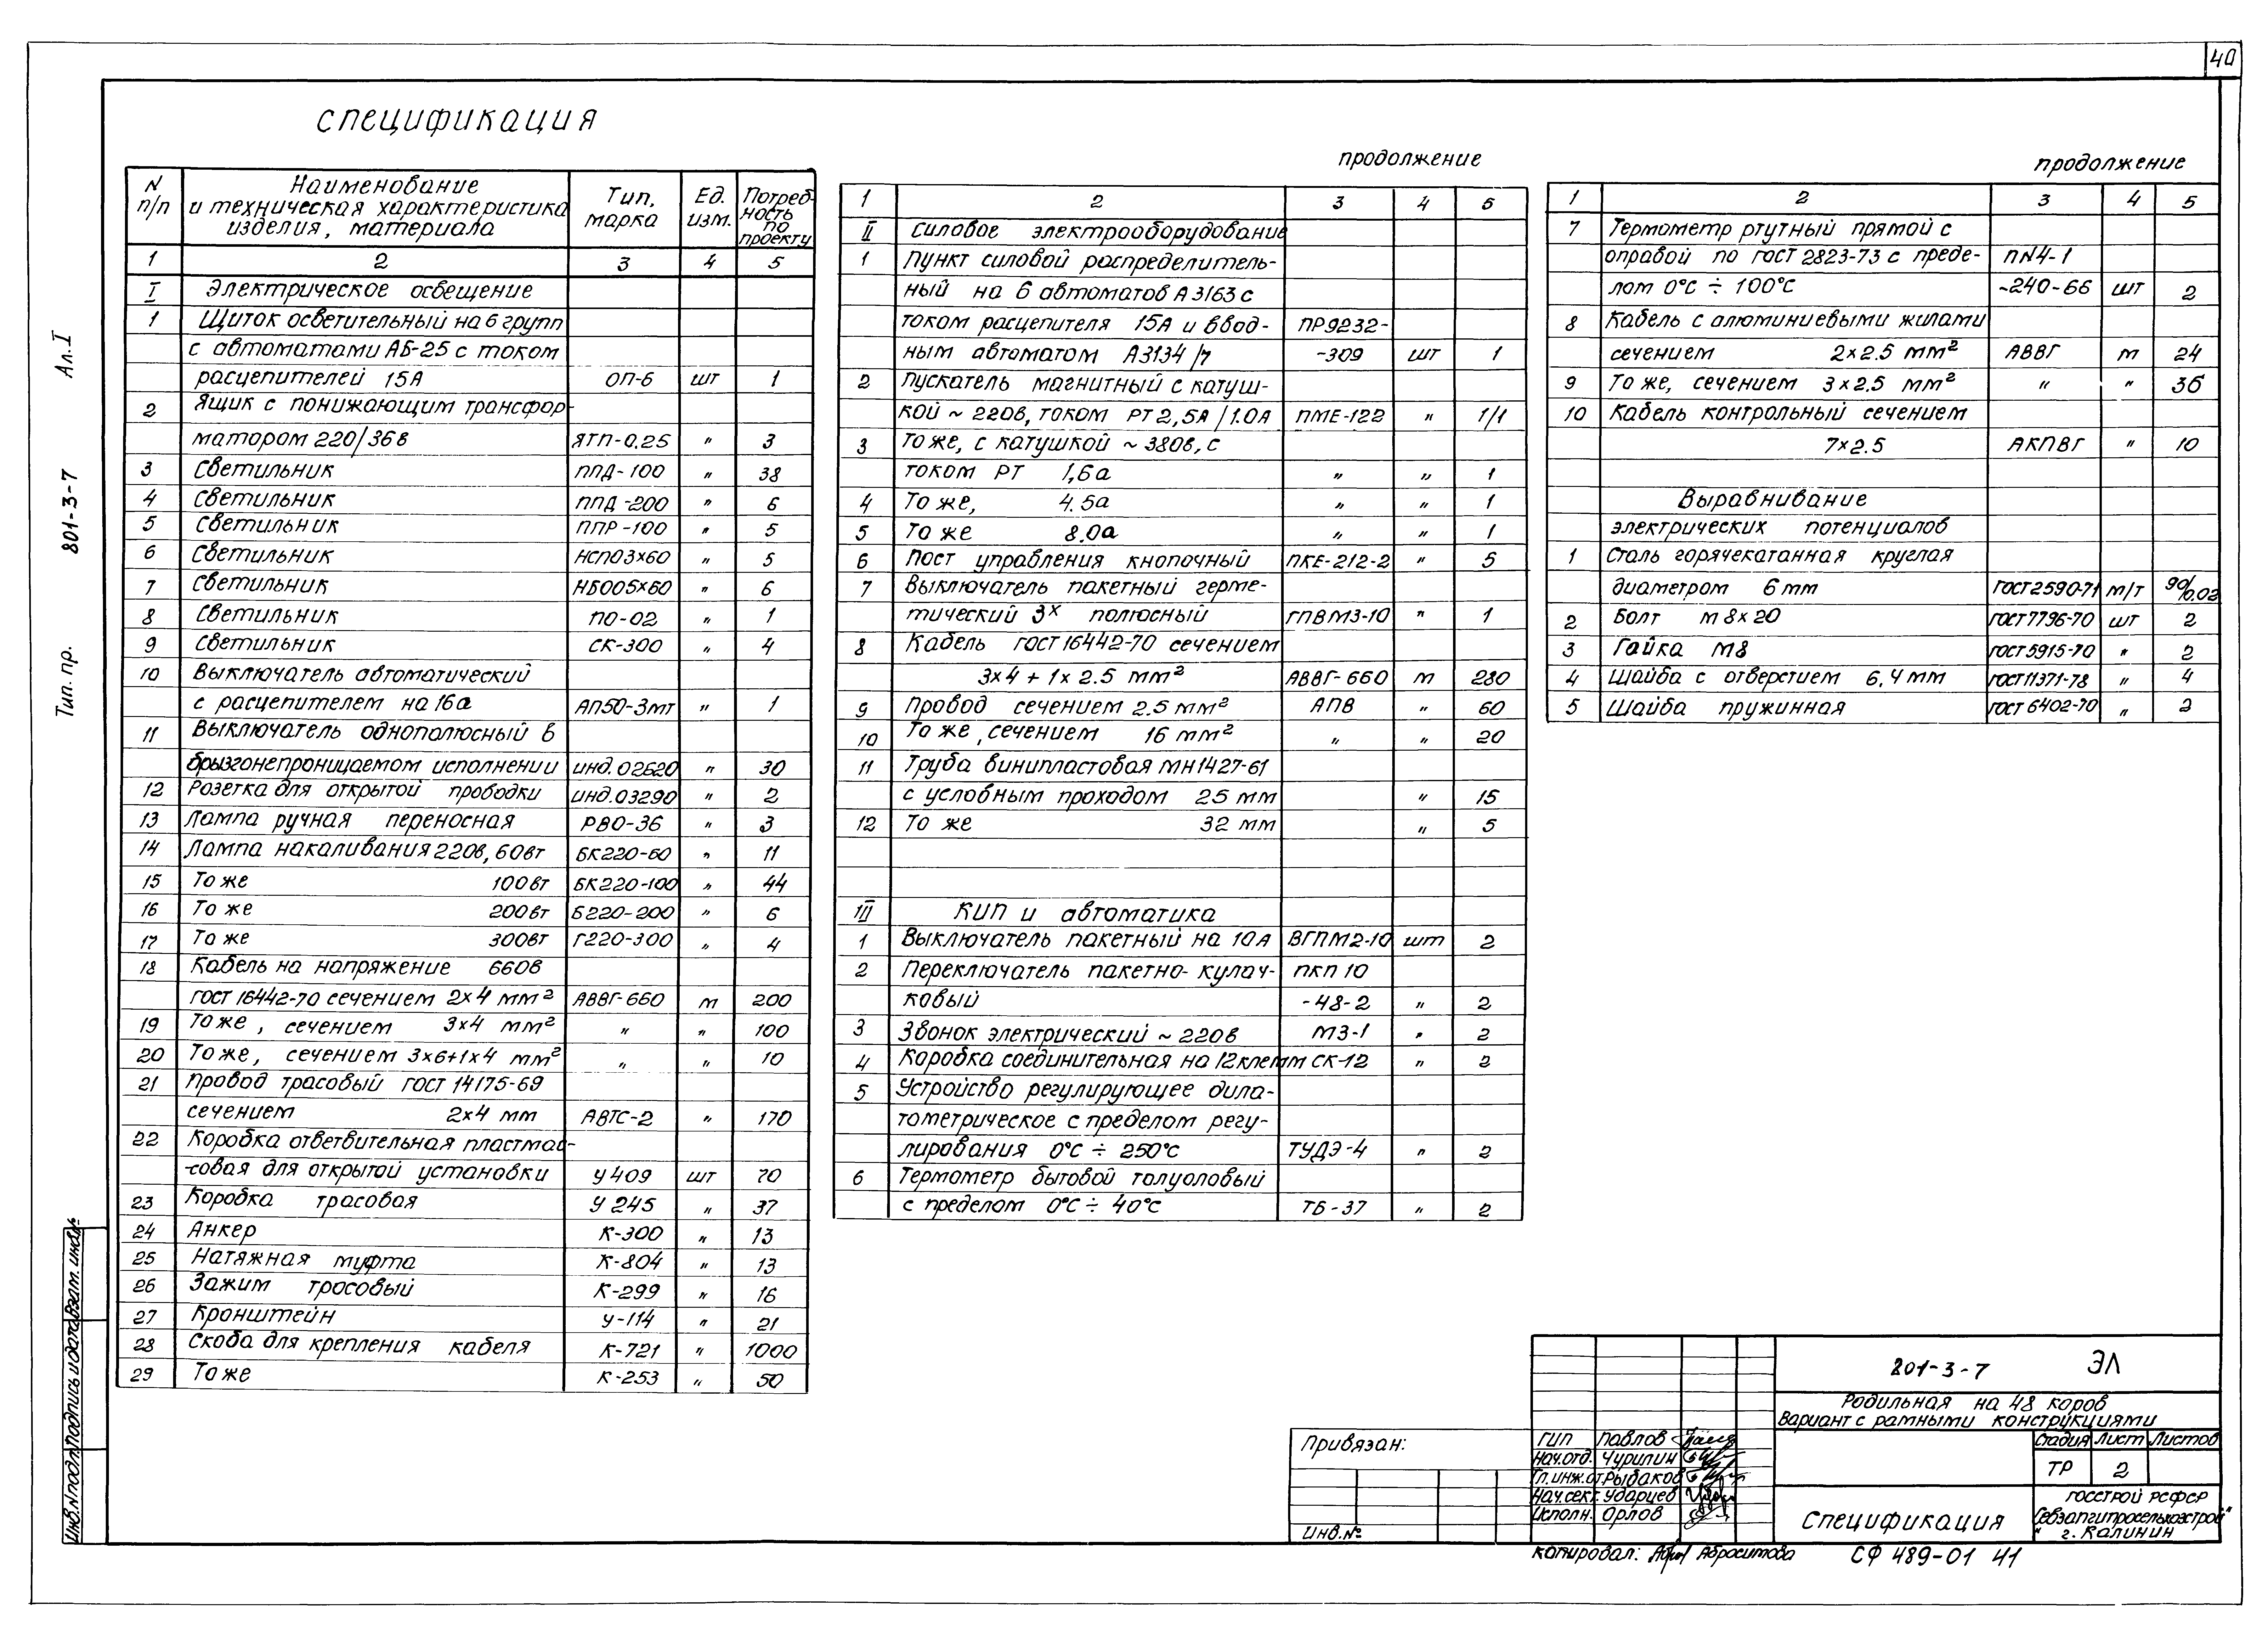 40
Спецификация
N п/п | Наименование и техническая характеристика изделия, материала | Тип, марка | Ед. изм. | Потребность по проекту
1 | 2 | 3 | 4 | 5
I Электрическое освещение
1 Щиток осветительный на 6 групп
с автоматами АБ-25 с током
расцепителей 15А ОП-6 шт 1
2 Ящик с понижающим трансфор-
матором 220/36в ЯТП-0.25 " 3
3 Светильник ППД-100 " 38
4 Светильник ППД-200 " 6
5 Светильник ППР-100 " 5
6 Светильник НСП03х60 " 5
7 Светильник НБ005х60 " 6
8 Светильник ПО-02 " 1
9 Светильник СК-300 " 4
10 Выключатель автоматический
с расцепителем на 16а АП50-3мт " 1
11 Выключатель однополюсный в
брызгонепроницаемом исполнении инд.02620 " 30
12 Розетка для открытой проводки инд.03290 " 2
13 Лампа ручная переносная РВО-36 " 3
14 Лампа накаливания 220в, 60вт БК220-60 " 11
15 То же 100вт БК220-100 " 44
16 То же 200вт Б220-200 " 6
17 То же 300вт Г220-300 " 4
18 Кабель на напряжение 660в
гост 16442-70 сечением 2х4 мм² АВВГ-660 м 200
19 То же, сечением 3х4 мм² " " 100
20 То же, сечением 3х6+1х4 мм² " " 10
21 Провод трасовый гост 14175-69
сечением 2х4 мм АВТС-2 " 170
22 Коробка ответвительная пластмас-
-совая для открытой установки У409 шт 70
23 Коробка трасовая У 245 " 37
24 Анкер К-300 " 13
25 Натяжная муфта К-804 " 13
26 Зажим тросовый К-299 " 16
27 Кронштейн У-114 " 21
28 Скоба для крепления кабеля К-721 " 1000
29 То же К-253 " 50
продолжение
1 | 2 | 3 | 4 | 5
II Силовое электрооборудование
1 Пункт силовой распределитель-
ный на 6 автоматов А 3163 с
током расцепителя 15А и ввод- ПР9232-
ным автоматом А3134/7 -309 шт 1
2 Пускатель магнитный с катуш-
кой ~ 220в, током РТ 2,5А/1.0А ПМЕ-122 " 1/1
3 То же, с катушкой ~ 380в, с
током РТ 1,6а " " 1
4 То же, 4.5а " " 1
5 То же 8.0а " " 1
6 Пост управления кнопочный ПКЕ-212-2 " 5
7 Выключатель пакетный герме-
тический 3х полюсный ГПВМ3-10 " 1
8 Кабель гост 16442-70 сечением
3х4 + 1х2.5 мм² АВВГ-660 м 280
9 Провод сечением 2.5 мм² АПВ " 60
10 То же, сечением 16 мм² " " 20
11 Труба винипластовая МН1427-61
с условным проходом 25 мм " 15
12 То же 32 мм " 5
III КИП и автоматика
1 Выключатель пакетный на 10А ВГПМ2-10 шт 2
2 Переключатель пакетно-кулач- ПКП 10
ковый -48-2 " 2
3 Звонок электрический ~ 220в МЗ-1 " 2
4 Коробка соединительная на 12 клемм СК-12 " 2
5 Устройство регулирующее дила-
тометрическое с пределом регу-
лирования 0°С ÷ 250°С ТУДЭ-4 " 2
6 Термометр бытовой толуоловый
с пределом 0°С ÷ 40°С ТБ-37 " 2
продолжение
1 | 2 | 3 | 4 | 5
7 Термометр ртутный прямой с
оправой по гост 2823-73 с преде- П№4-1
лам 0°С ÷ 100°С -240-66 шт 2
8 Кабель с алюминиевыми жилами
сечением 2х2.5 мм² АВВГ м 24
9 То же, сечением 3х2.5 мм² " " 36
10 Кабель контрольный сечением
7х2.5 АКПВГ " 10
Выравнивание
электрических потенциалов
1 Сталь горячекатанная круглая
диаметром 6 мм гост 2590-71 м/т 90/0.02
2 Болт м 8х20 гост 7796-70 шт 2
3 Гайка М8 гост 5915-70 " 2
4 Шайба с отверстием 6,4 мм гост 11371-78 " 4
5 Шайба пружинная гост 6402-70 " 2
Тип. пр. 801-3-7 Ал. I
Инв.№подл. Подпись и дата Взам. инв.№
Привязан:
Инв.№
ГИП Павлов
Нач.отд. Чурилин
Гл.инж.от Рыбаков
Нач.сект. Ударцев
Исполн. Орлов
801-3-7 ЭЛ
Родильная на 48 коров
Вариант с рамными конструкциями
Стадия Лист Листов
ТР 2
Спецификация
Госстрой РСФСР
"Севзапгипросельхозстрой"
г. Калинин
Копировал: Абросимова СФ 489-01 41